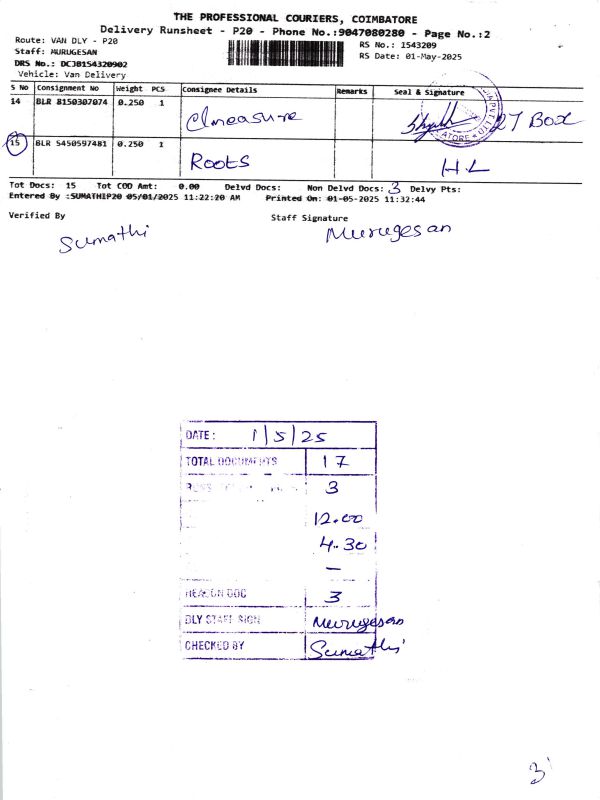 THE PROFESSIONAL COURIERS, COIMBATORE
Delivery Runsheet - P20 - Phone No.:9047080280 - Page No.:2
Route: VAN DLY - P20
RS No.: 1543209
Staff: MURUGESAN
RS Date: 01-May-2025
DRS No.: DCJB154320902
Vehicle: Van Delivery
S No Consignment No Weight PCS Consignee Details Remarks Seal & Signature
14 BLR 8150307074 0.250 1 27 Box
15 BLR 5450597481 0.250 1 Roots H L
Tot Docs: 15 Tot COD Amt: 0.00 Delvd Docs: Non Delvd Docs: 3 Delvy Pts:
Entered By :SUMATHIP20 05/01/2025 11:22:20 AM Printed On: 01-05-2025 11:32:44
Verified By Staff Signature
Sumathi Murugesan
DATE: 1/5/25
TOTAL DOCUMENTS 17
3
12.00
4.30
—
3
DLY STAFF SIGN Murugesan
CHECKED BY Sumathi
3